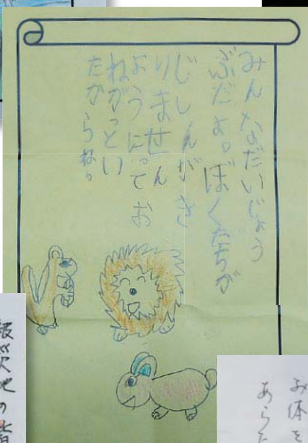 みんなだいじょう
ぶだよ。ぼくたちが
じしんがき
りません
ようにってお
ねがっとい
たからね。
被災地の皆
お体を
あらた